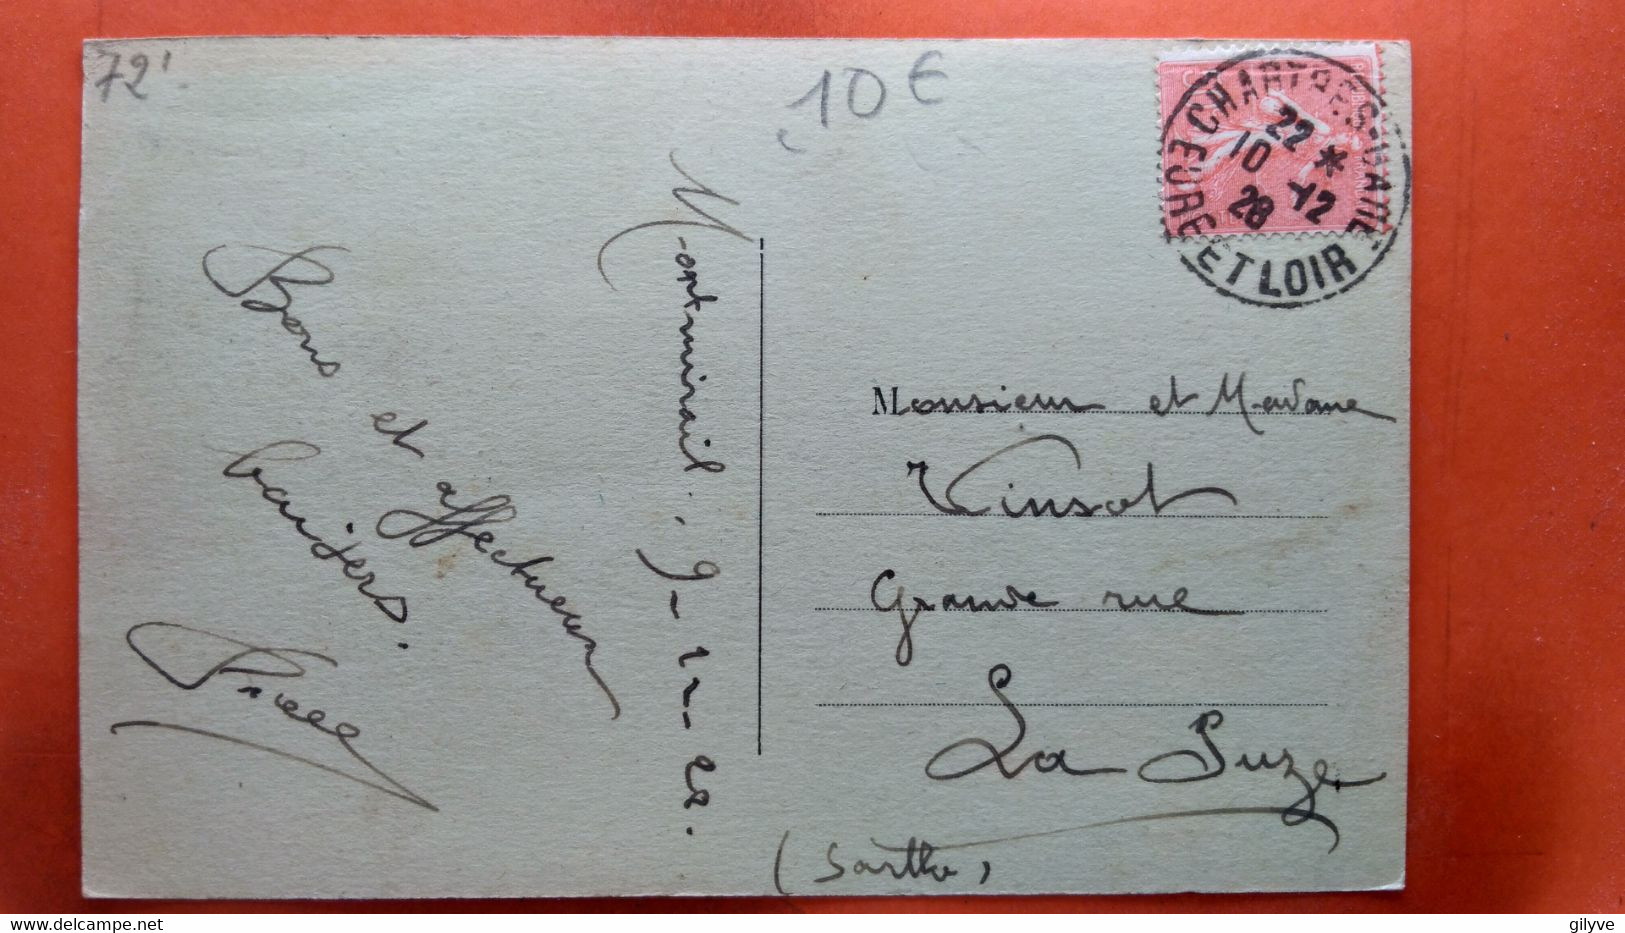 72
10€
CHARTRES-GARE
22 *
10 -12
28
EURE ET LOIR
Montmirail. 9-12-28.
Bons et affectueux
baisers.
Monsieur et Madame
Vinsot
Grande rue
La Suze
(Sarthe)
delcampe.net
gilyve